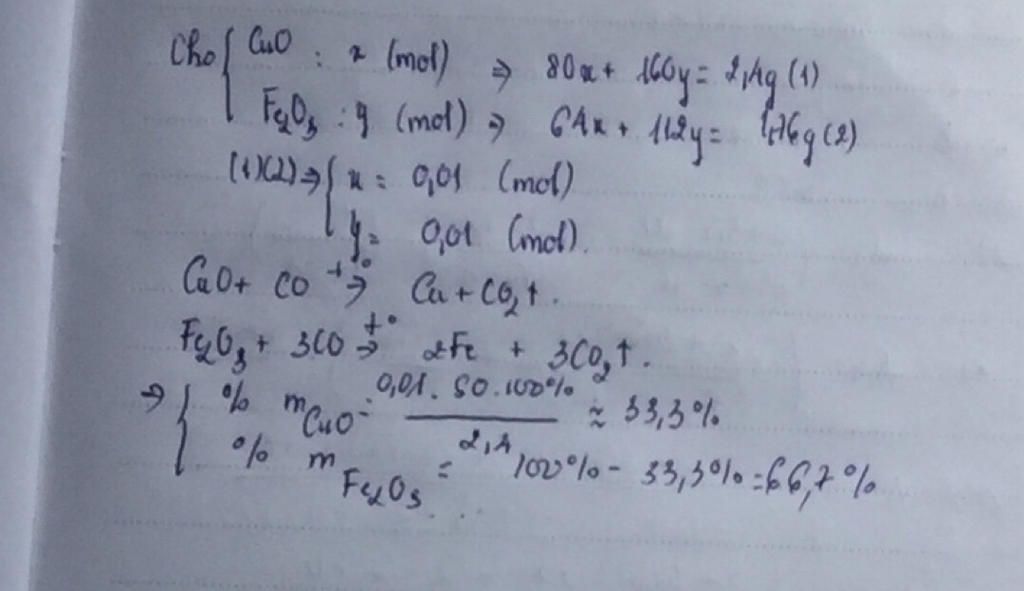 Cho { CuO : x (mol) => 80x + 160y = 2,4g (1)
Fe2O3 : y (mol) => 64x + 112y = 1,76g (2)
(1)(2) => { x = 0,01 (mol)
y = 0,01 (mol).
CuO + CO t°=> Cu + CO2↑.
Fe2O3 + 3CO t°=> 2Fe + 3CO2↑.
=> { % mCuO = 0,01 . 80 . 100% / 2,4 ≈ 33,3%
% mFe2O3 = 100% - 33,3% = 66,7%